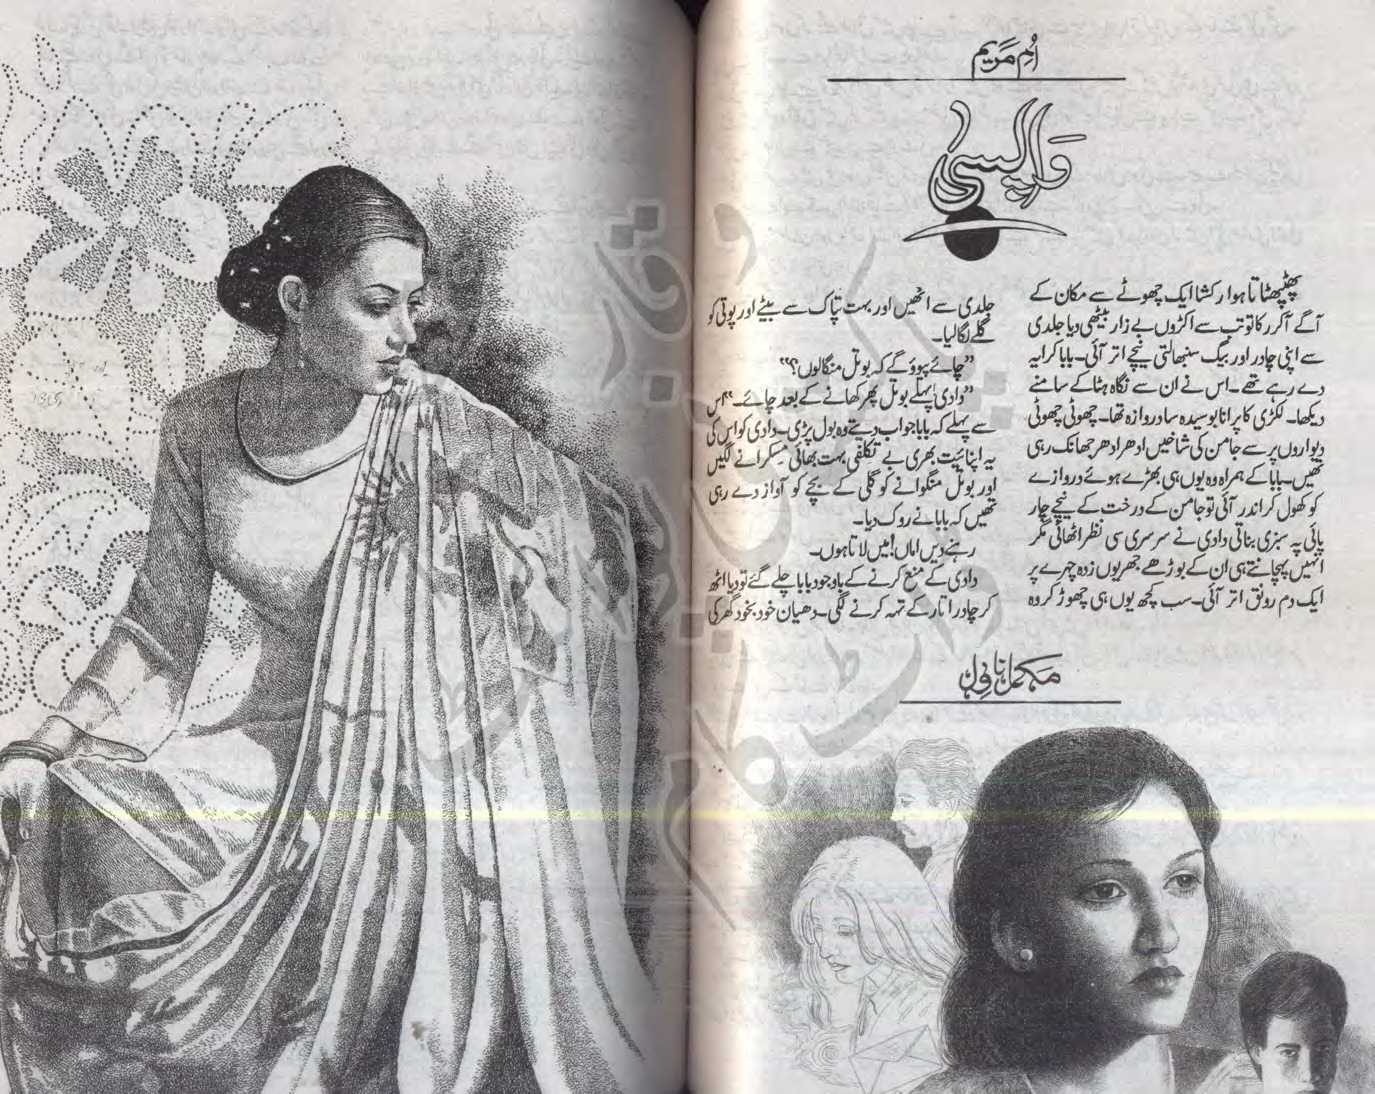 اُمِ مَریم
واپسی
پھٹپھٹاتا ہوا رکشا ایک چھوٹے سے مکان کے
آگے آکر رکا تو تب سے اکڑوں بے زار بیٹھی دیا جلدی
سے اپنی چادر اور بیگ سنبھالتی نیچے اتر آئی۔ بابا کرایہ
دے رہے تھے۔ اس نے ان سے نگاہ ہٹا کے سامنے
دیکھا۔ لکڑی کا پرانا بوسیدہ سا دروازہ تھا۔ چھوٹی چھوٹی
دیواروں پر سے جامن کی شاخیں ادھر ادھر جھانک رہی
تھیں۔ بابا کے ہمراہ وہ یوں ہی بھڑے ہوئے دروازے
کو کھول کر اندر آئی تو جامن کے درخت کے نیچے چار
پائی پہ سبزی بناتی دادی نے سرسری سی نظر اٹھائی مگر
انہیں پہچانتے ہی ان کے بوڑھے جھریوں زدہ چہرے پر
ایک دم رونق اتر آئی۔ سب کچھ یوں ہی چھوڑ کر وہ
جلدی سے اٹھیں اور بہت تپاک سے بیٹے اور پوتی کو
گلے لگالیا۔
”چائے پیوؤ گے کہ بوتل منگالوں؟“
”دادی! پہلے بوتل پھر کھانے کے بعد چائے۔“ اس
سے پہلے کہ بابا جواب دیتے وہ بول پڑی۔ دادی کو اس کی
یہ اپنائیت بھری بے تکلفی بہت بھائی مسکرانے لگیں
اور بوتل منگوانے کو گلی کے بچے کو آواز دے رہی
تھیں کہ بابا نے روک دیا۔
رہنے دیں اماں! میں لاتا ہوں۔
دادی کے منع کرنے کے باوجود بابا چلے گئے تو دیا اٹھ
کر چادر اتار کے تہہ کرنے لگی۔ دھیان خود بخود گھر کی
مکمل ناول
پاک سوسائٹی ڈاٹ کام